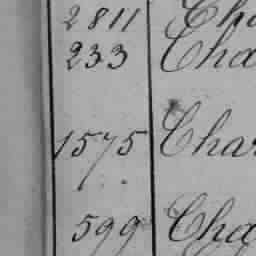 2811 Cha
233 Cha
1575 Char
599 Cha